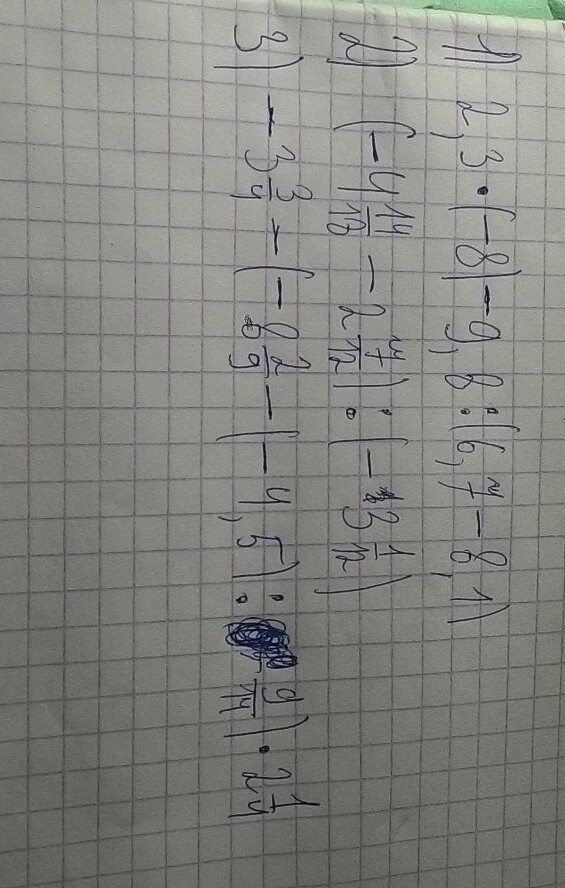 1) 2,3·(-8)-9,8:(6,7-8,1)
2) (-4 14/18 - 2 7/12):(-3 1/12)
3) -3 3/4 - (-8 2/9 - (-4,5): 9/14)·2 1/4